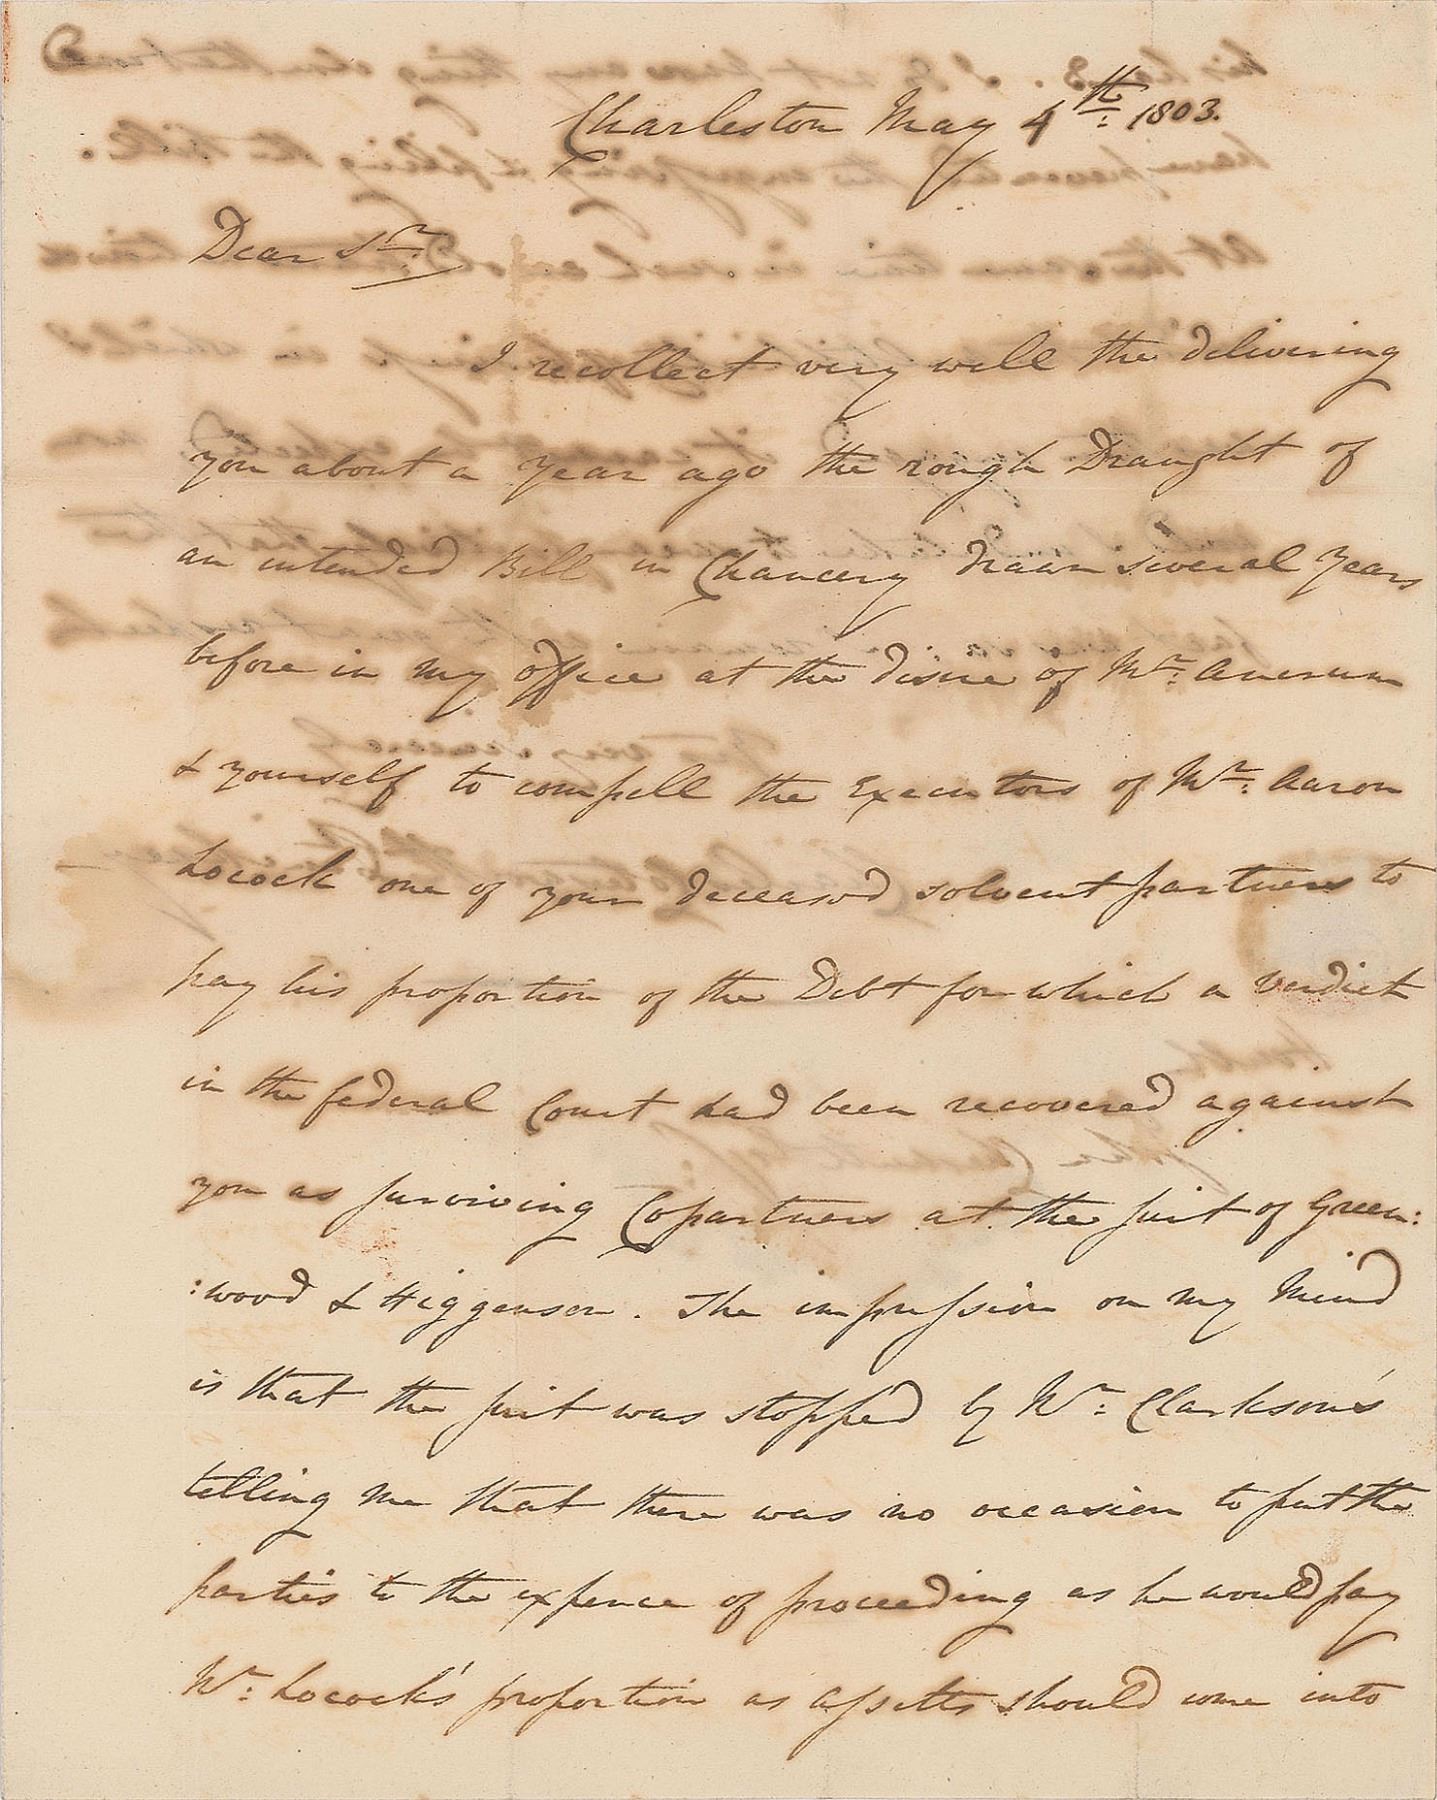 Charleston May 4th: 1803.
Dear Sr:
I recollect very well the delivering
you about a year ago the rough Draught of
an intended Bill in Chancery drawn several years
before in my office at the desire of Mr: Averum
& yourself to compell the Executors of Mr: Aaron
Locock one of your deceased solvent partners to
pay his proportion of the Debt for which a Verdict
in the federal Court had been recovered against
you as surviving Copartners at the suit of Green:
:wood & Higgenson. The impression on my Mind
is that the suit was stopped by Mr: Clarkson's
telling me that there was no occasion to put the
parties to the expence of proceeding as he would pay
Mr: Locock's proportion as assetts should come into